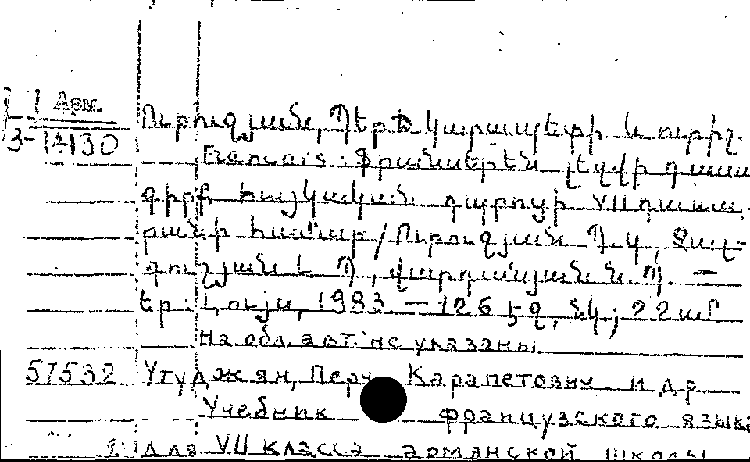 Арм.
3-14130
Ուրուզյան, Պերճ Կարապետի և ուրիշ.
Francais : Ֆրանսերեն լեզվի դասա
գիրք հայկական դպրոցի VII դասա
րանի համար / Ուրուզյան Պ. Կ., Չալ-
գուշյան Լ. Պ., Վարդանյան Ն. Պ. —
Եր.: Լույս, 1983. — 126 էջ, նկ.; 22 սմ
На обл. авт. не указаны
57532 Утуджян, Перч Карапетович и др.
Учебник французского языка
для VII класса армянской школы